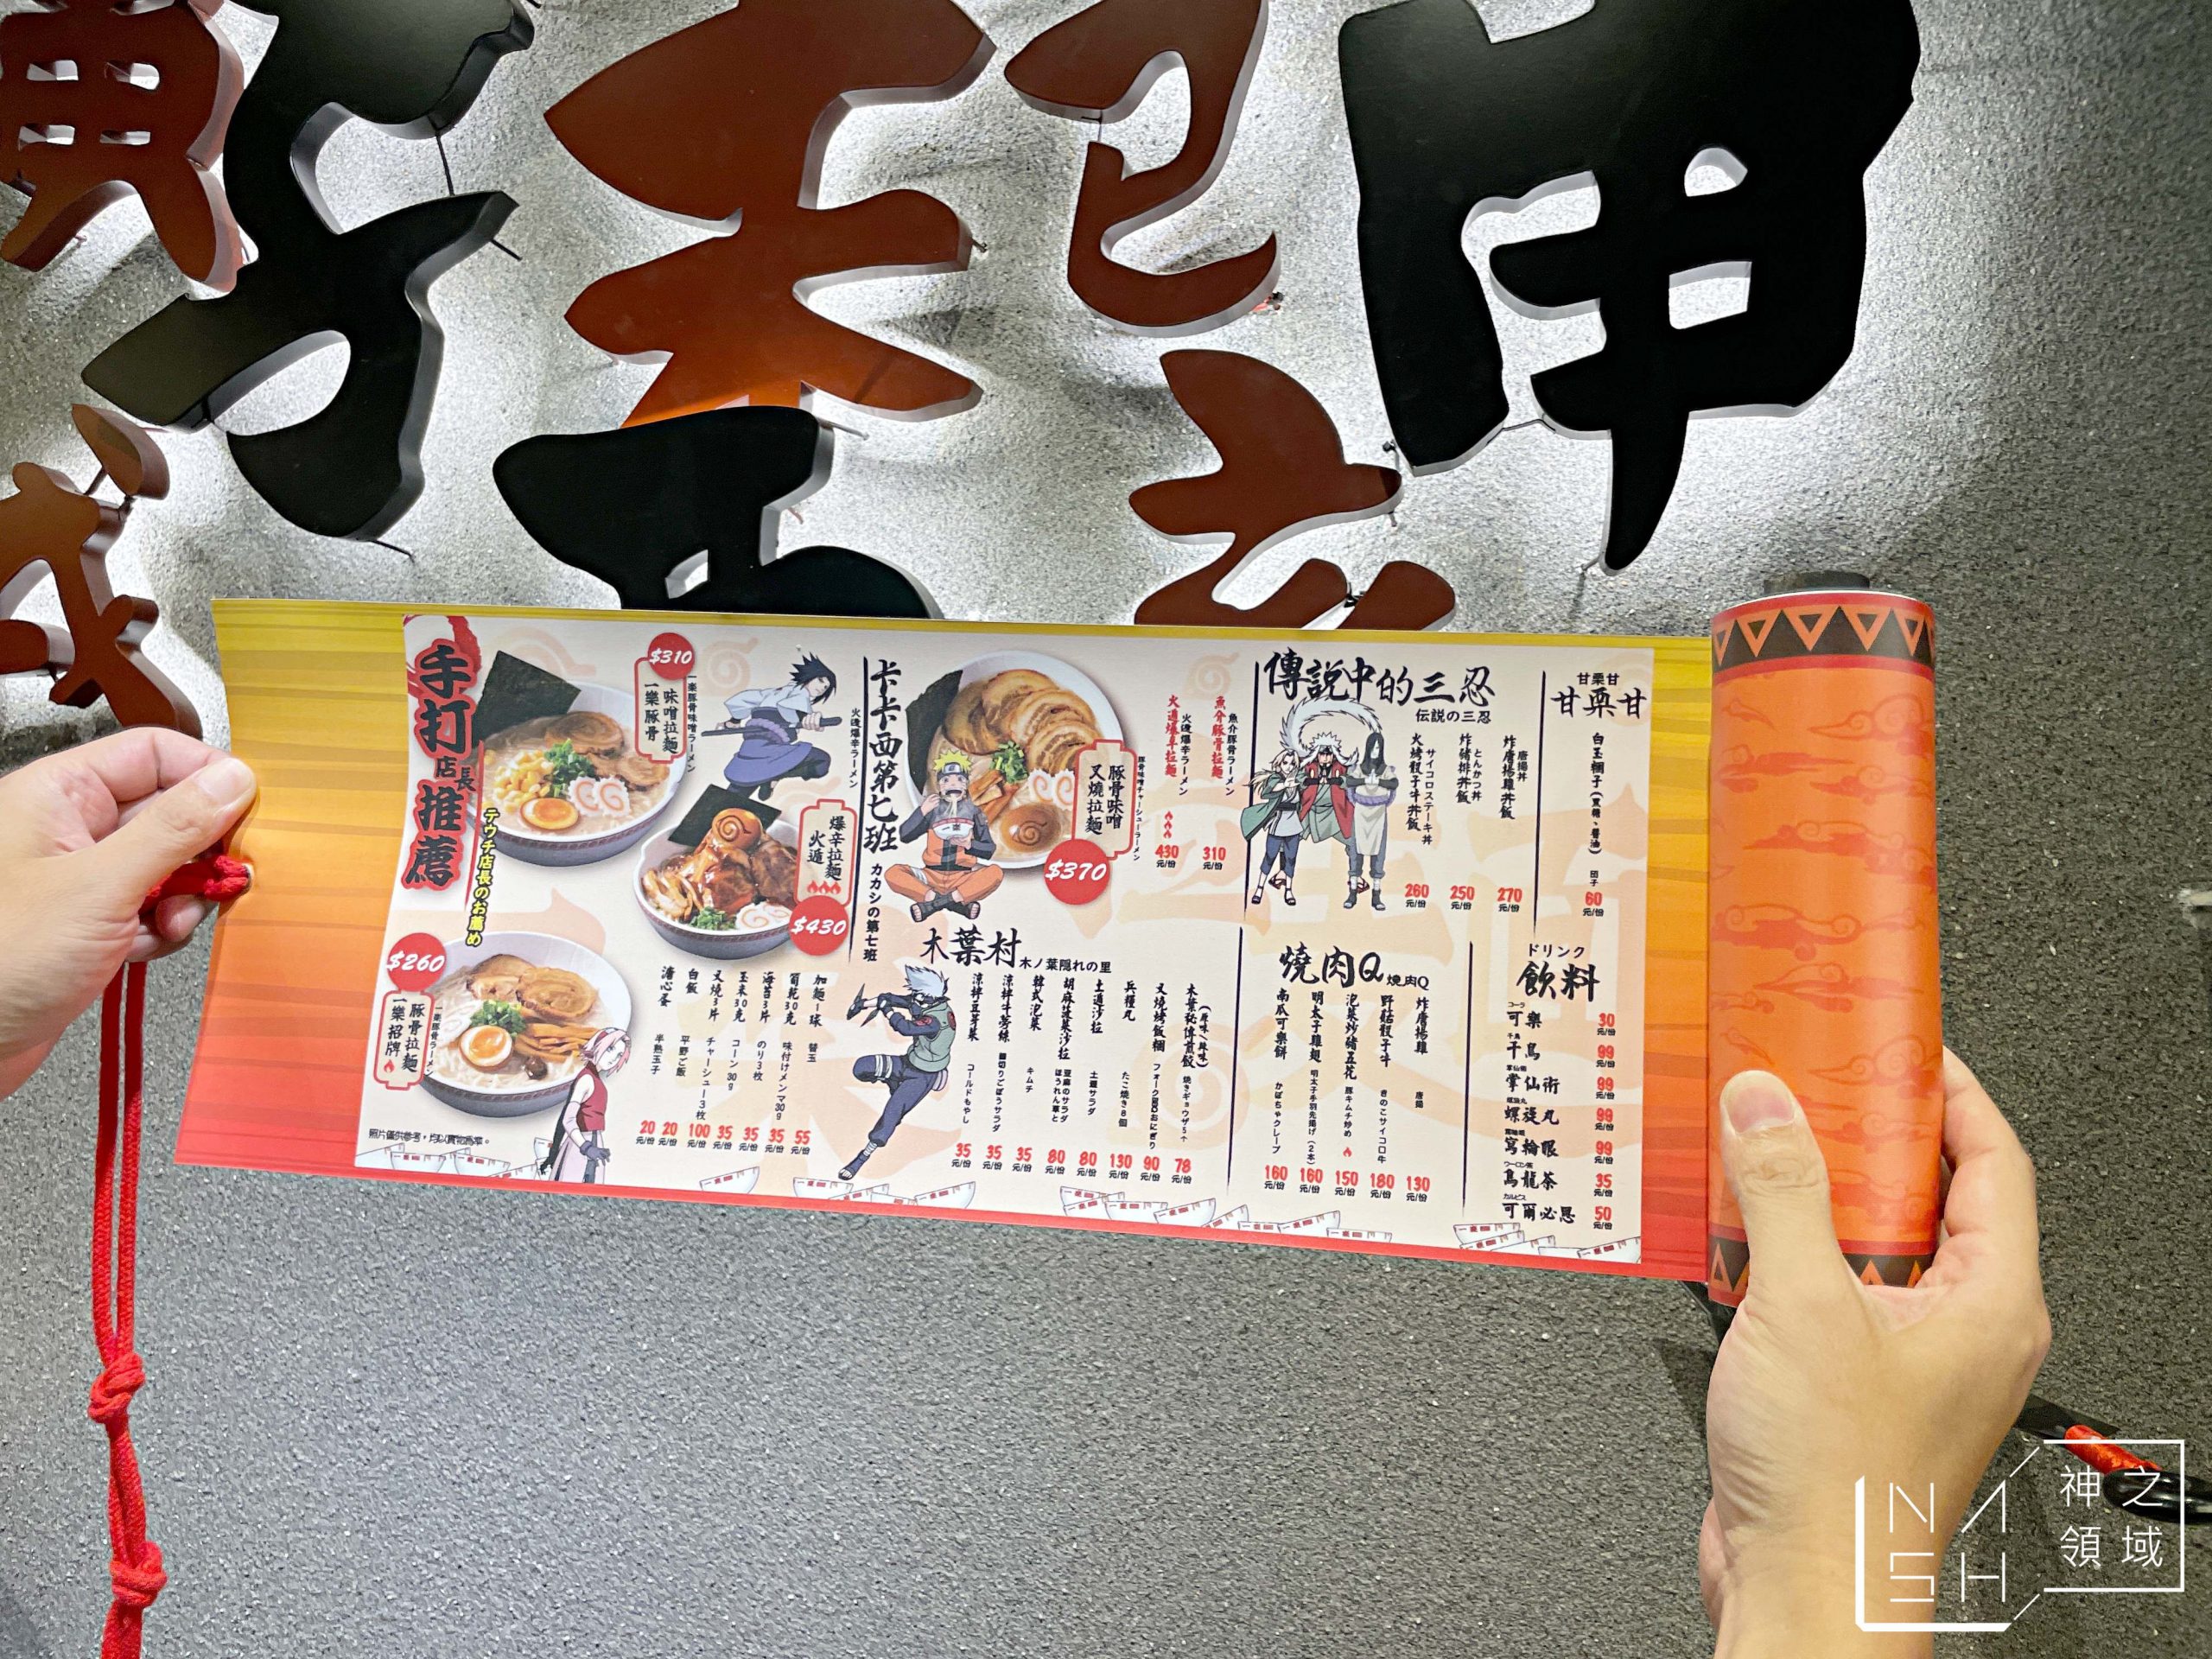 手打店長推薦
テウチ店長のお薦め
$310
一樂豚骨
味噌拉麵
一楽豚骨味噌ラーメン
火遁
爆辛拉麵
火遁爆辛ラーメン
$430
$260
一樂招牌
豚骨拉麵
一楽豚骨ラーメン
照片僅供參考，均以實物為準。
加麵一球 替玉 55元/份
筍乾30克 味付けメンマ30g 35元/份
海苔3片 のり3枚 35元/份
玉米30克 コーン30g 35元/份
叉燒3片 チャーシュー3枚 100元/份
白飯 平野ご飯 20元/份
溏心蛋 半熟玉子 20元/份
卡卡西第七班
カカシの第七班
豚骨味噌
叉燒拉麵
豚骨味噌チャーシューラーメン
$370
魚介豚骨拉麵 魚介豚骨ラーメン 310元/份
火遁爆辛拉麵 火遁爆辛ラーメン 430元/份
木葉村
木ノ葉隠れの里
木葉祕傳煎餃（原味、辣味） 焼きギョウザ5ケ 78元/份
叉燒烤飯糰 90元/份
兵糧丸 たこ焼き8個 130元/份
土遁沙拉 土遁サラダ 80元/份
胡麻菠菜沙拉 80元/份
韓式泡菜 キムチ 35元/份
涼拌牛蒡絲 細切りごぼうサラダ 35元/份
涼拌豆芽菜 コールドもやし 35元/份
傳說中的三忍
伝説の三忍
炸唐揚雞丼飯 唐揚丼 270元/份
炸豬排丼飯 とんかつ丼 250元/份
火烤骰子牛丼飯 サイコロステーキ丼 260元/份
甘栗甘
甘栗甘
白玉糰子（黑糖、醬油） 団子 60元/份
燒肉Q
焼肉Q
炸唐揚雞 唐揚 130元/份
野菇骰子牛 きのこサイコロ牛 180元/份
泡菜炒豬五花 豚キムチ炒め 150元/份
明太子雞翅 明太子手羽先揚げ（2本） 160元/份
南瓜可樂餅 かぼちゃクレープ 160元/份
ドリンク
飲料
コーラ
可樂 30元/份
千鳥
千鳥 99元/份
掌仙術
掌仙術 99元/份
螺旋丸
螺旋丸 99元/份
寫輪眼 99元/份
ウーロン茶
烏龍茶 35元/份
カルピス
可爾必思 50元/份
申
NASH
神之領域